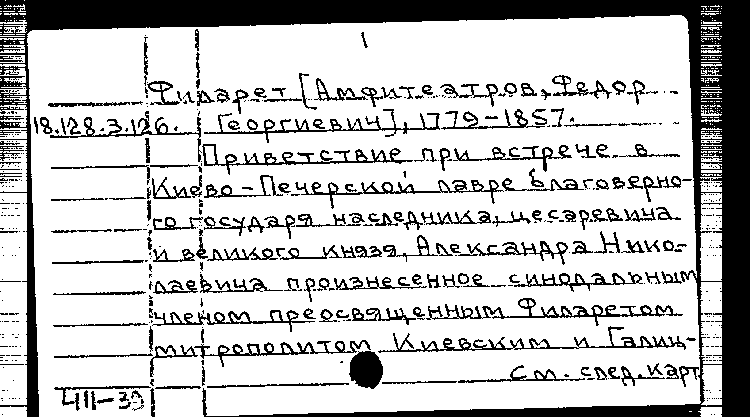 1
Филарет [Амфитеатров, Федор
18.128.3.126. Георгиевич], 1779-1857.
Приветствие при встрече в
Киево-Печерской лавре благоверно-
го государя наследника, цесаревича
и великого князя, Александра Нико-
лаевича произнесенное синодальным
членом преосвященным Филаретом
митрополитом Киевским и Галиц-
См. след. карт
411-39